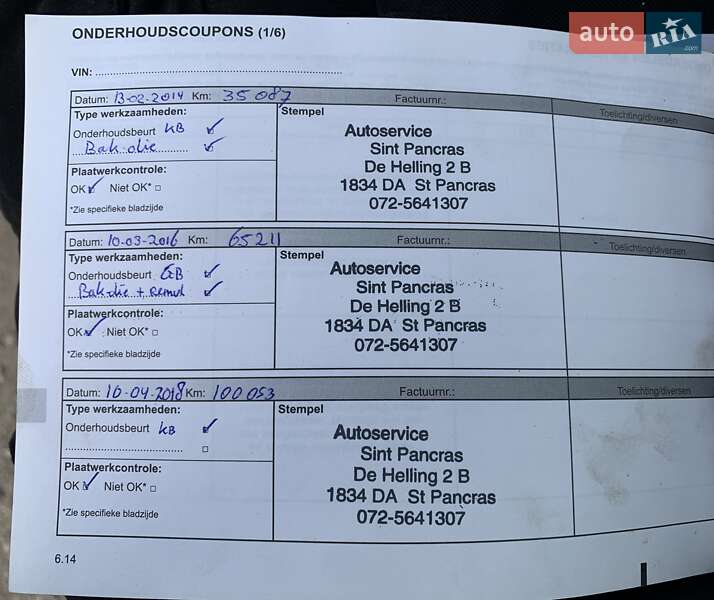 auto RIA .com
ONDERHOUDSCOUPONS (1/6)
VIN:
Datum: 13-02-2014 Km: 35 087 Factuurnr.: Toelichting/diversen
Type werkzaamheden: Stempel
Onderhoudsbeurt KB
Bak-olie
Plaatwerkcontrole:
OK Niet OK*
*Zie specifieke bladzijde
Autoservice
Sint Pancras
De Helling 2 B
1834 DA St Pancras
072-5641307
Datum: 10-03-2016 Km: 65211 Factuurnr.: Toelichting/diversen
Type werkzaamheden: Stempel
Onderhoudsbeurt GB
Bak-olie + remvl
Plaatwerkcontrole:
OK Niet OK*
*Zie specifieke bladzijde
Autoservice
Sint Pancras
De Helling 2 B
1834 DA St Pancras
072-5641307
Datum: 10-04-2018 Km: 100 053 Factuurnr.: Toelichting/diversen
Type werkzaamheden: Stempel
Onderhoudsbeurt KB
Plaatwerkcontrole:
OK Niet OK*
*Zie specifieke bladzijde
Autoservice
Sint Pancras
De Helling 2 B
1834 DA St Pancras
072-5641307
6.14